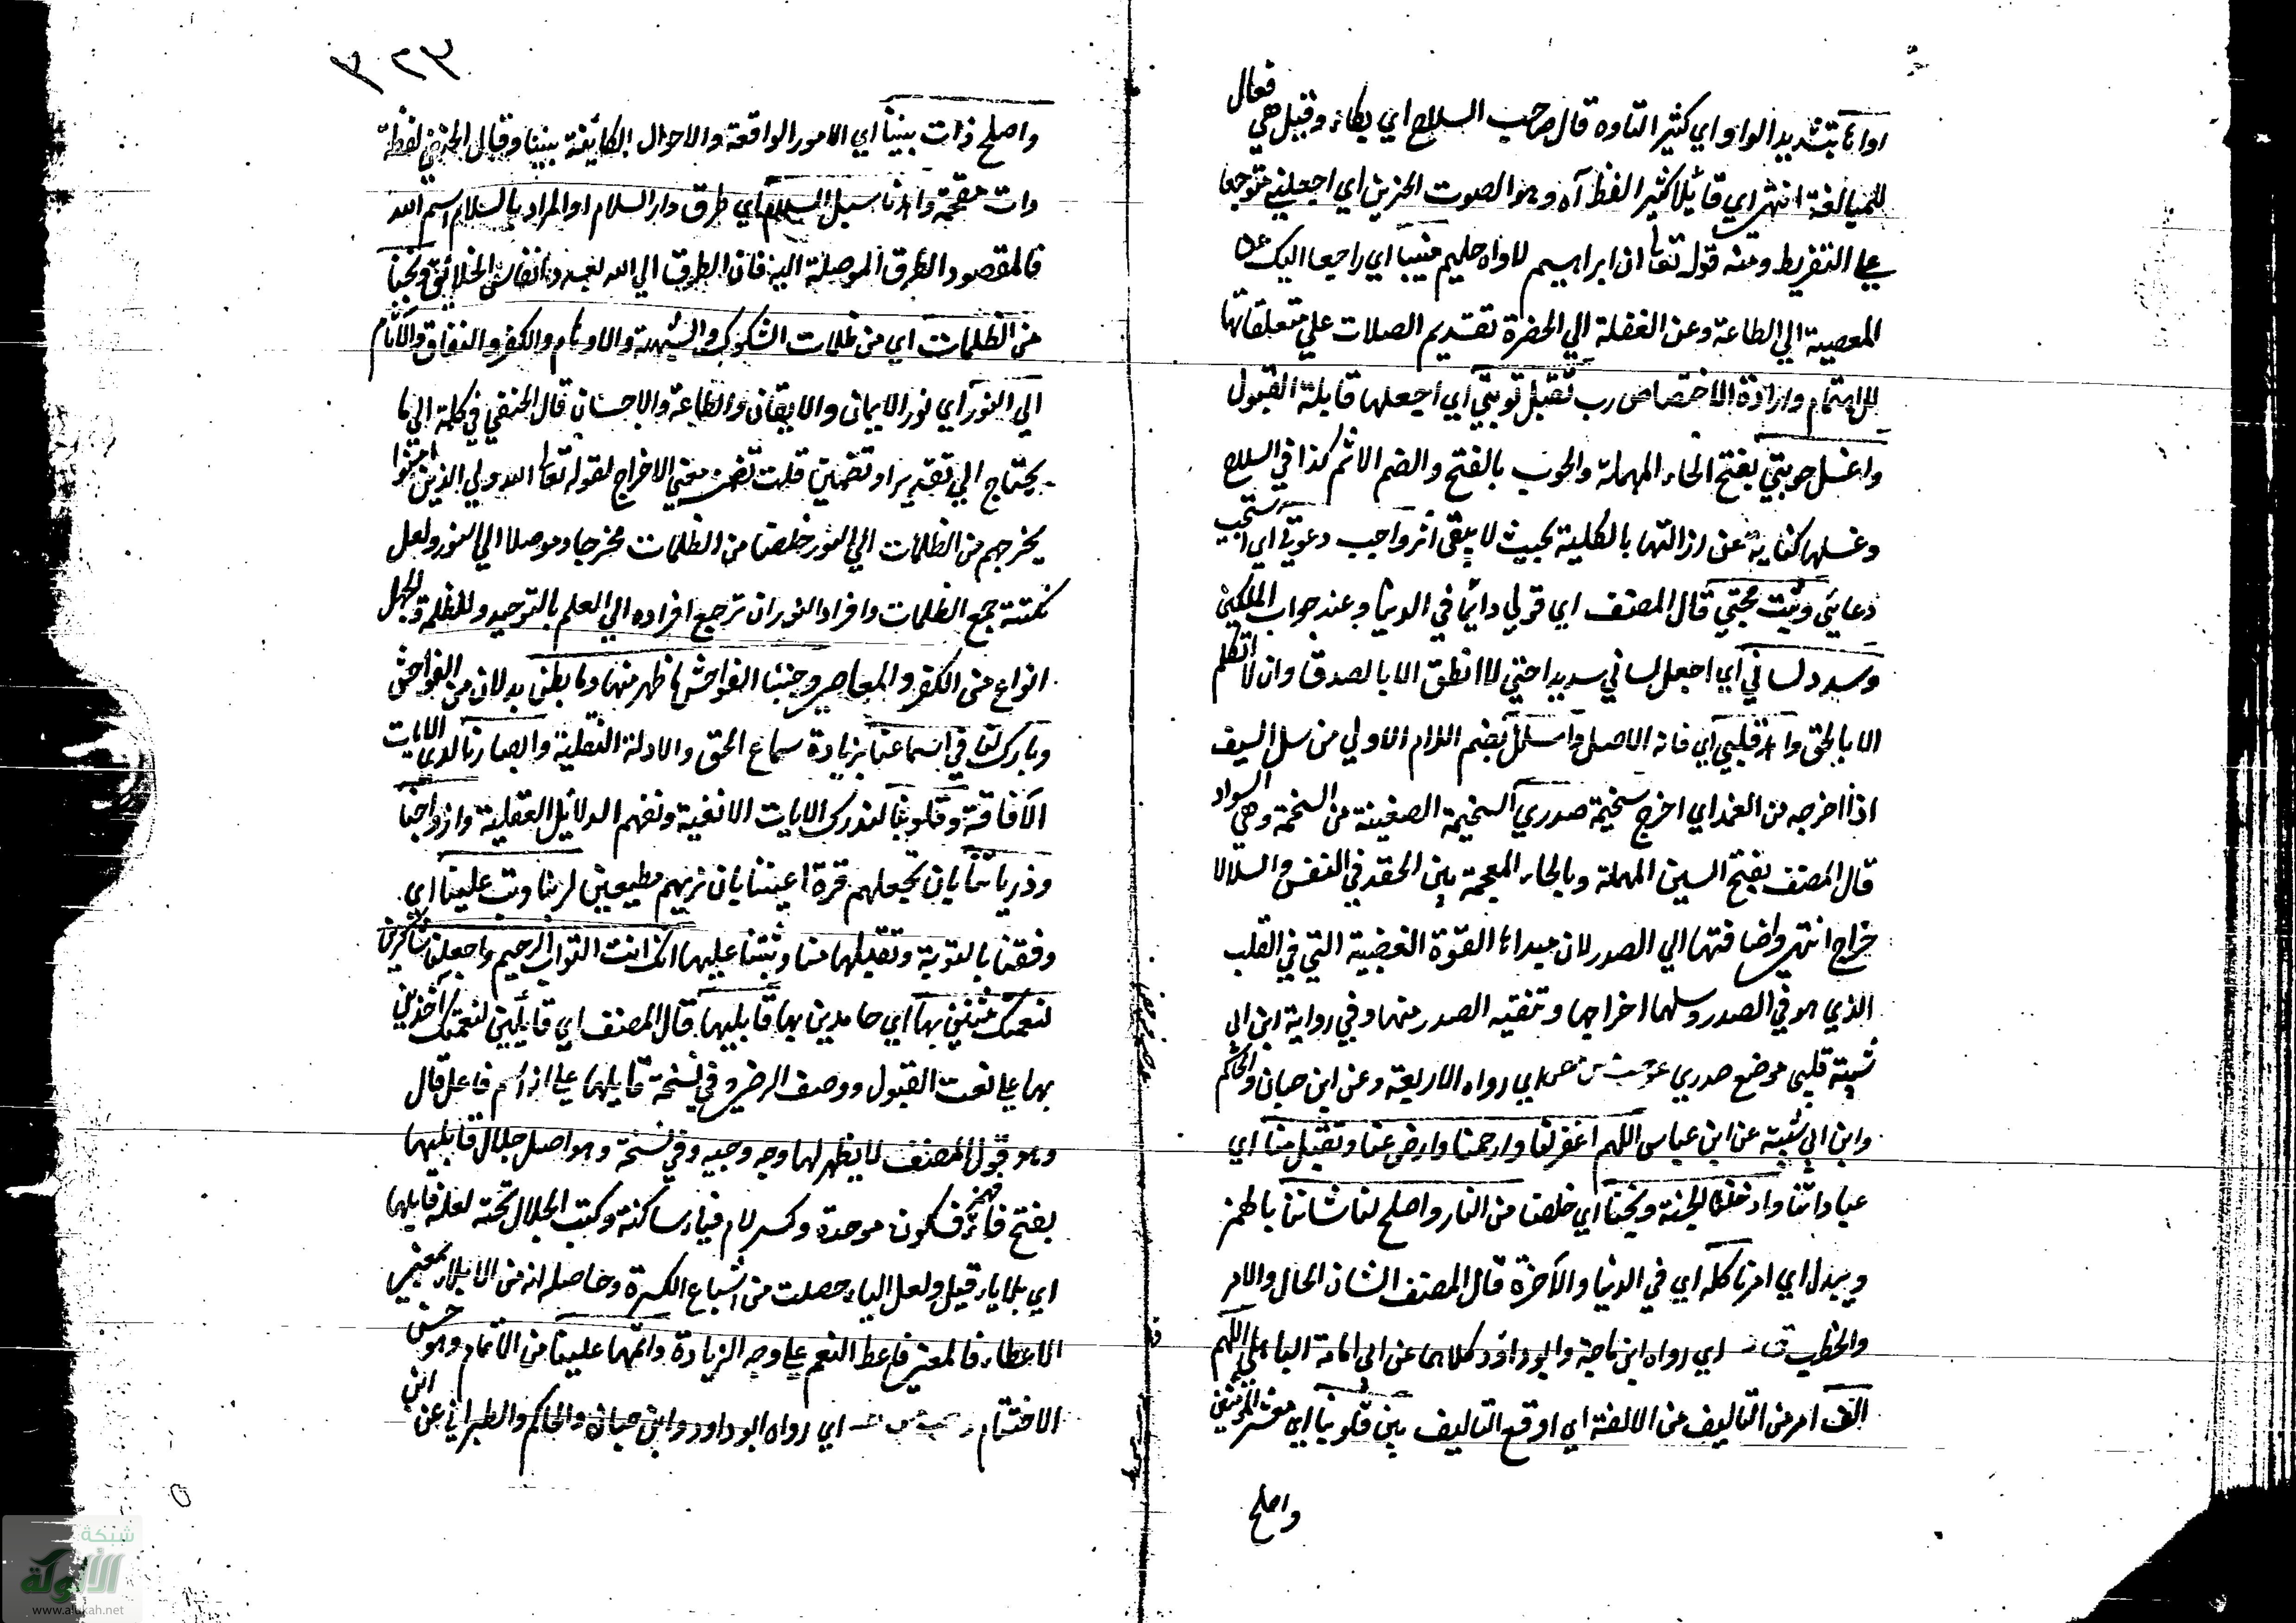 اواها بتشديد الواو اي كثير التاوه قال صاحب السلاح اي بكاء وقيل هي فعال
للمبالغة انتهى اي قائلا كثير الفظ آه وهو الصوت الحزين اي اجعلني متوجعا
علي التفريط ومنه قوله تعالى ان ابراهيم لاواه حليم منيبا اي راجعا اليك عن
المعصية الي الطاعة وعن الغفلة الي الحضرة تقديم الصلات علي متعلقاتها
للاهتمام وارادة الاختصاص رب تقبل توبتي اي اجعلها قابلة القبول
واغسل حوبتي بفتح الحاء المهملة والحوب بالفتح والضم الاثم كذا في السلاح
وغسلها كناية عن ازالتها بالكلية بحيث لا يبقى اثر واجب دعوتي اي استجب
دعائي وثبت حجتي قال المصنف اي قولي دائما في الدنيا وعند جواب الملكين
وسدد لساني اي اجعل لساني سديدا حتي لا انطق الا بالصدق وان لا اتكلم
الا بالحق واهد قلبي اي فانه الاصل واسلل بضم اللام الاولي من سل السيف
اذا اخرجه من الغمد اي اخرج سخيمة صدري السخيمة الضغينة من السخمة وهي السواد
قال المصنف بفتح السين المهملة وبالخاء المعجمة هي الحقد في النفس والسلالا
خراج انتهى واضافتها الي الصدر لان مبداها القوة الغضبية التي في القلب
الذي هو في الصدر وسلها اخراجها وتنقيه الصدر منها وفي رواية ابن ابي
شيبة قلبي موضع صدري اي رواه الاربعة وعن ابن حبان والحاكم
وابن ابي شيبة عن ابن عباس اللهم اغفر لنا وارحمنا وارض عنا وتقبل منا اي
عباداتنا وادخلنا الجنة ونجنا اي خلصنا من النار واصلح لنا شاننا بالهمز
ويبدل اي امرنا كله اي في الدنيا والآخرة قال المصنف الشان الحال والامر
والخطب ق د اي رواه ابن ماجة وابو داود كلاهما عن ابي امامة الباهلي اللهم
الف امر من التاليف من الالفة اي اوقع التاليف بين قلوبنا اي معشر المؤمنين
واصلح
٣٢٣
واصلح ذات بيننا اي الامور الواقعة والاحوال الكائنة بيننا وقال الحنفي لفظة
ذات مقحمة واهدنا سبل السلام اي طرق دار السلام او المراد بالسلام اسم الله
فالمقصود الطرق الموصلة اليه فان الطرق الي الله بعدد انفاس الخلائق ونجنا
من الظلمات اي من ظلمات الشكوك والشبهة والاوهام والكفر والنفاق والآثام
الي النور اي نور الايمان والايقان والطاعة والاحسان قال الحنفي في كلمة الي ها
يحتاج الي تقدير او تضمين قلت تضمن معني الاخراج لقوله تعالى الله ولي الذين امنوا
يخرجهم من الظلمات الي النور خلصنا من الظلمات مخرجا وموصلا الي النور ولعل
نكتة جمع الظلمات وافراد النور ان ترجيع افراده الي العلم بالتوحيد وللظلمة والجهل
انواع من الكفر والمعاصي وجنبنا الفواحش ما ظهر منها وما بطن بدلان من الفواحش
وبارك لنا في اسماعنا بزيادة سماع الحق والادلة النقلية وابصارنا لدي الايات
الآفاقية وقلوبنا لندرك الايات الانفسية ونفهم الدلائل العقلية وازواجنا
وذرياتنا بان تجعلهم قرة اعيننا بان نريهم مطيعين لربنا وتب علينا اي
وفقنا بالتوبة وتقبلها منا وثبتنا عليها انك انت التواب الرحيم واجعلنا شاكرين
لنعمتك مثنين بها اي حامدين بها قابليها قال المصنف اي قايلين لنعمتك آخذين
بها علي نعت القبول ووصف الرضى وفي نسخة قايلها علي انه اسم فاعل قال
وهو قول المصنف لا يظهر لها وجه وجيه وفي نسخة وهو اصل جلال قابليها
بفتح فسكون موحدة وكسر لام فياء ساكنة وكتب الجلال تحته لعله قابلها
اي بلا ياء قيل ولعل الياء حصلت من اشباع الكسرة وحاصله انه من الابلاء بمعني
الاعطاء فالمعني فاعط النعم علي وجه الزيادة واتمها علينا من الاتمام وهو حسن
الاختتام اي رواه ابو داود وابن حبان والحاكم والطبراني عن ابن
شبكة
الألوكة
www.alukah.net